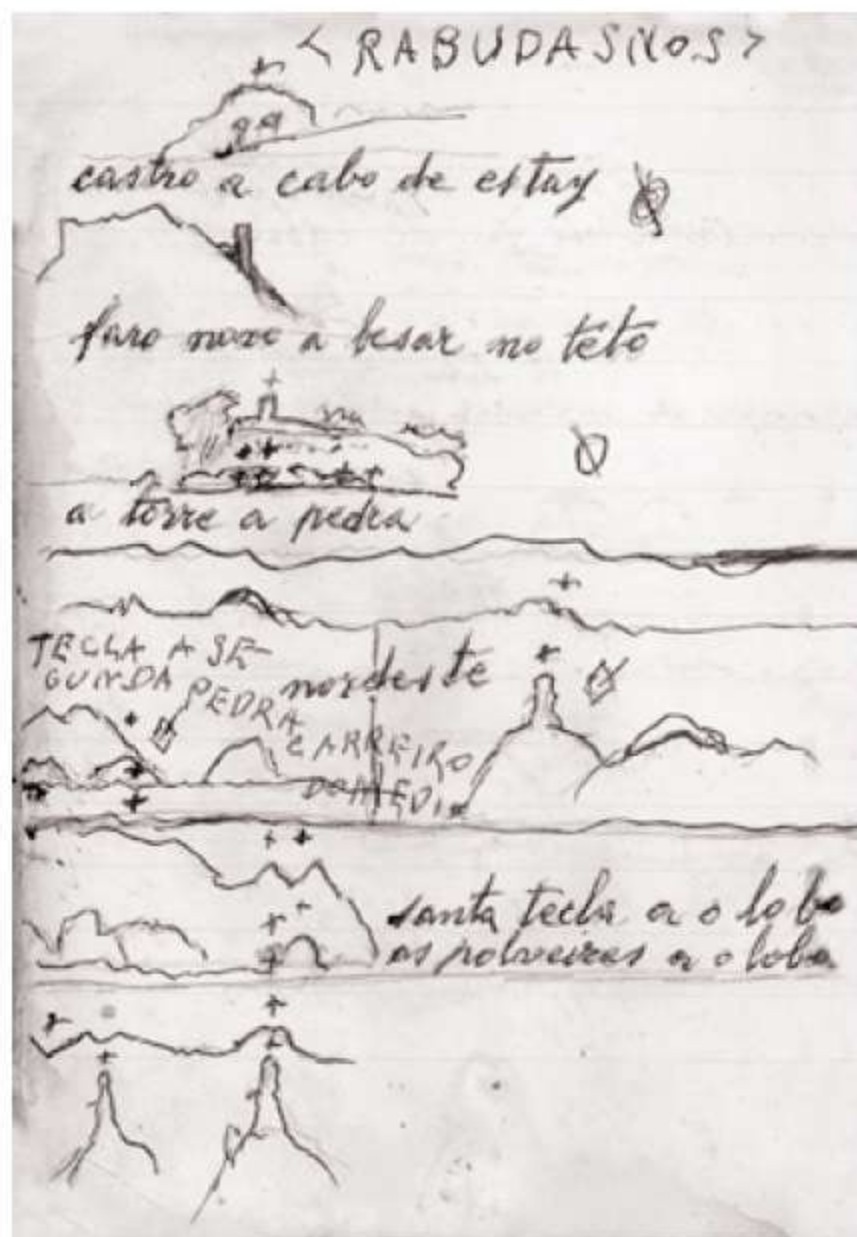 <RABUDASNOS>
castro a cabo de estay
faro novo a besar no teto
a torre a pedra
TECLA A SE-
GUNDA PEDRA
nordeste
CARREIRO
DO MEDIO
santa tecla a o lobo
as polveiras a o lobo